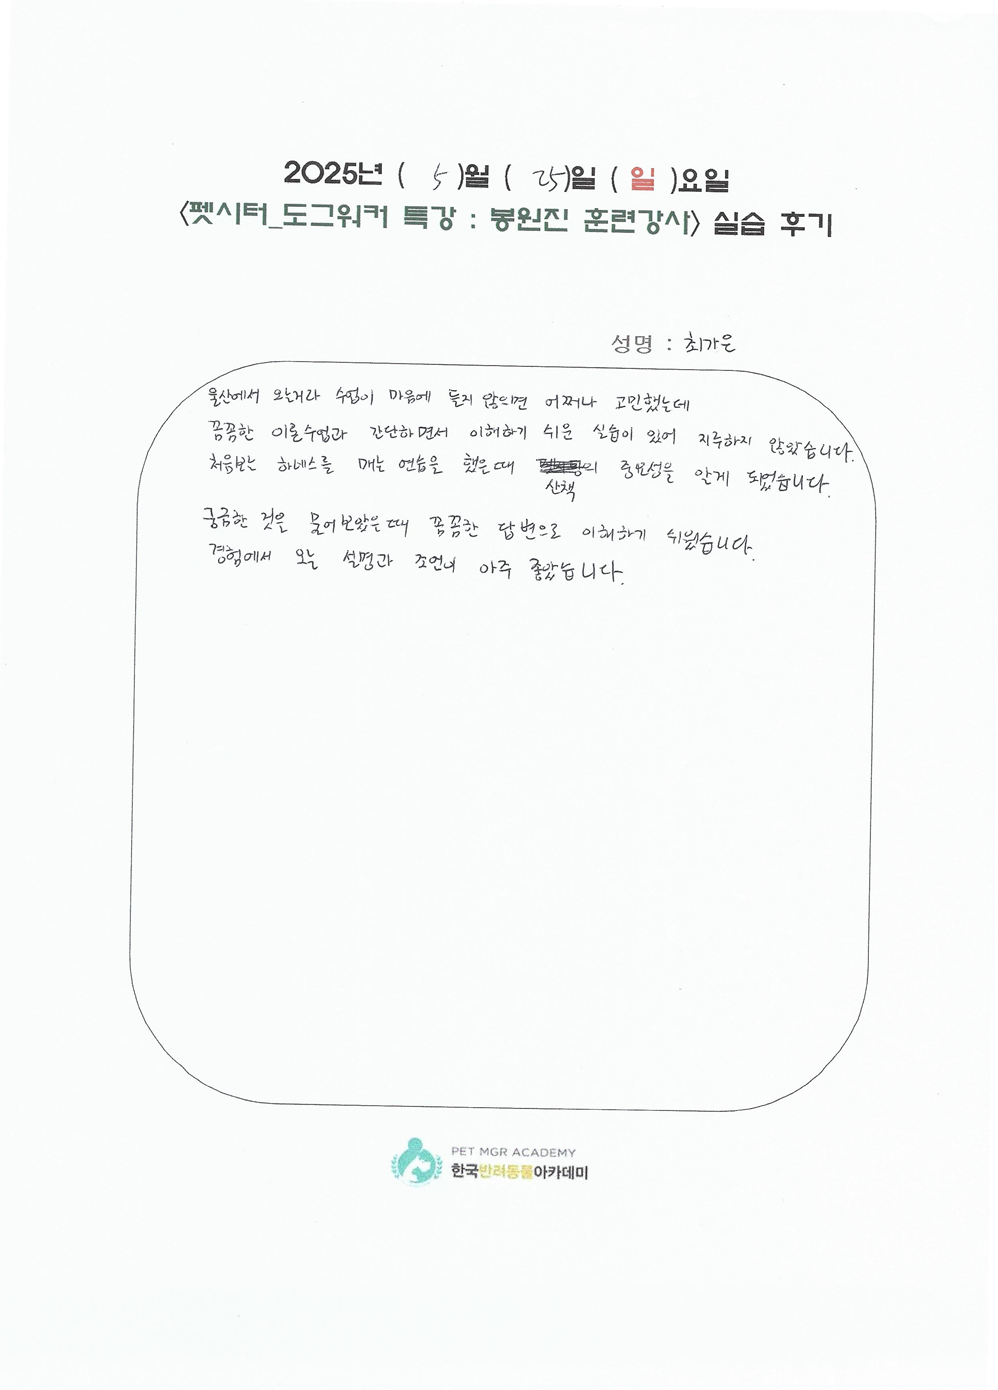 2025년 ( 5 )월 ( 25)일 ( 일 )요일
<펫시터_도그워커 특강 : 봉원진 훈련강사> 실습 후기
성명 : 최가은
울산에서 오는거라 수업이 마음에 들지 않으면 어쩌나 고민했는데
꼼꼼한 이론수업과 간단하면서 이해하기 쉬운 실습이 있어 지루하지 않았습니다.
처음보는 하네스를 매는 연습을 했을때 의 중요성을 알게 되었습니다.
산책
궁금한 것을 물어보았을때 꼼꼼한 답변으로 이해하기 쉬웠습니다.
경험에서 오는 설명과 조언이 아주 좋았습니다.
PET MGR ACADEMY
한국반려동물아카데미